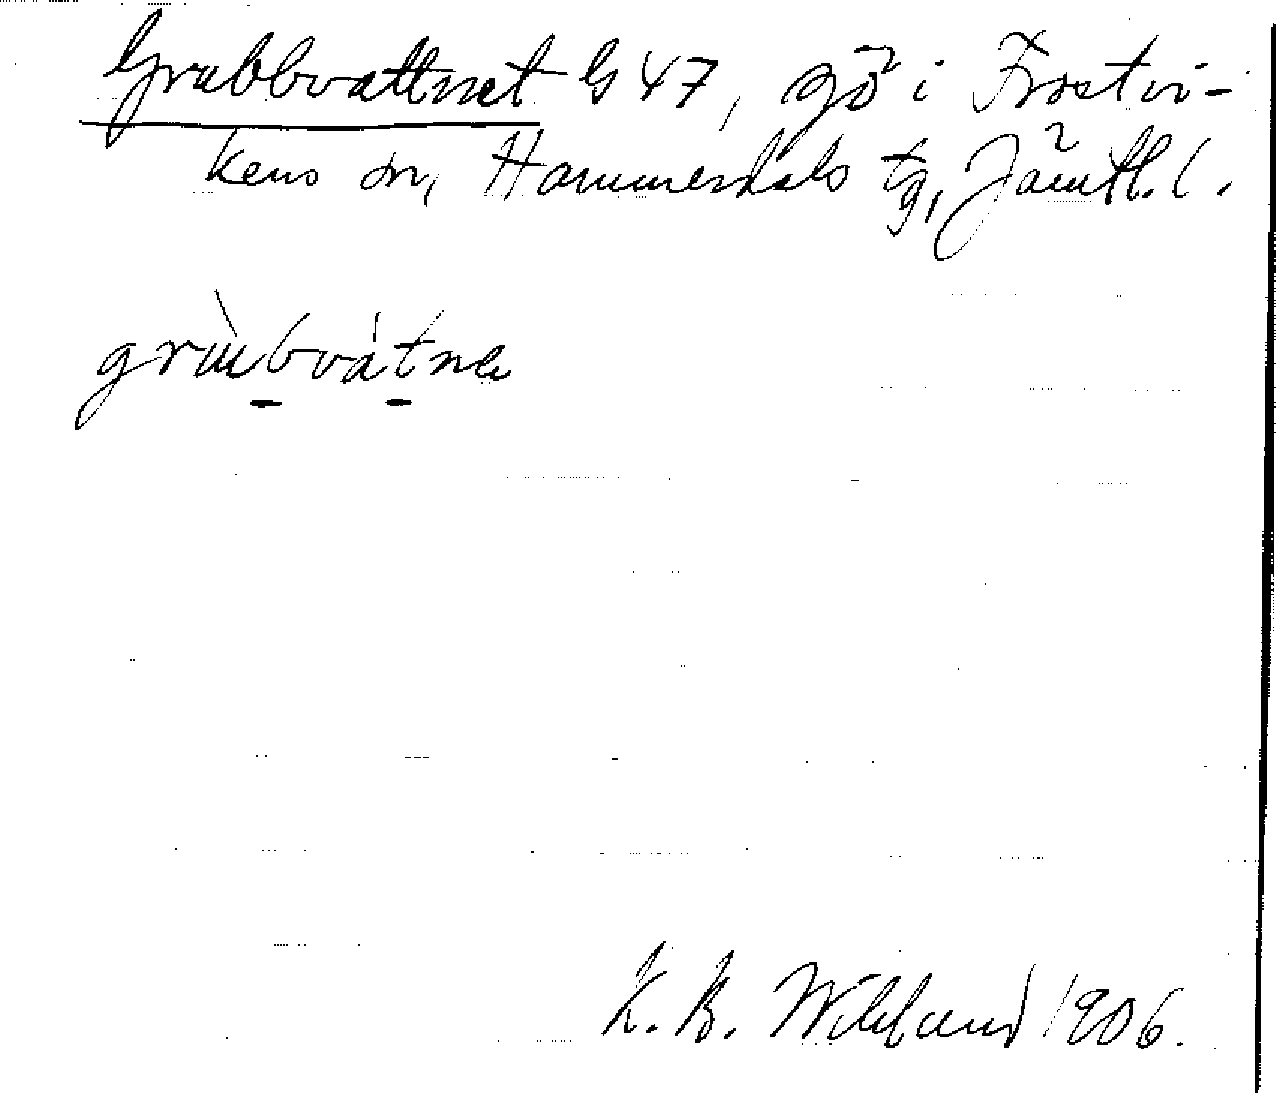 Grubbvattnet G 47, gd i Frostvi-
kens sn, Hammerdals tg, Jämtl. l.
grùbvátnə
K. B. Wiklund 1906.